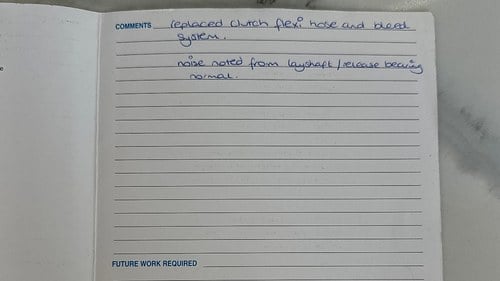 COMMENTS replaced clutch flexi hose and bleed
system.
noise noted from layshaft / release bearing
normal.
FUTURE WORK REQUIRED